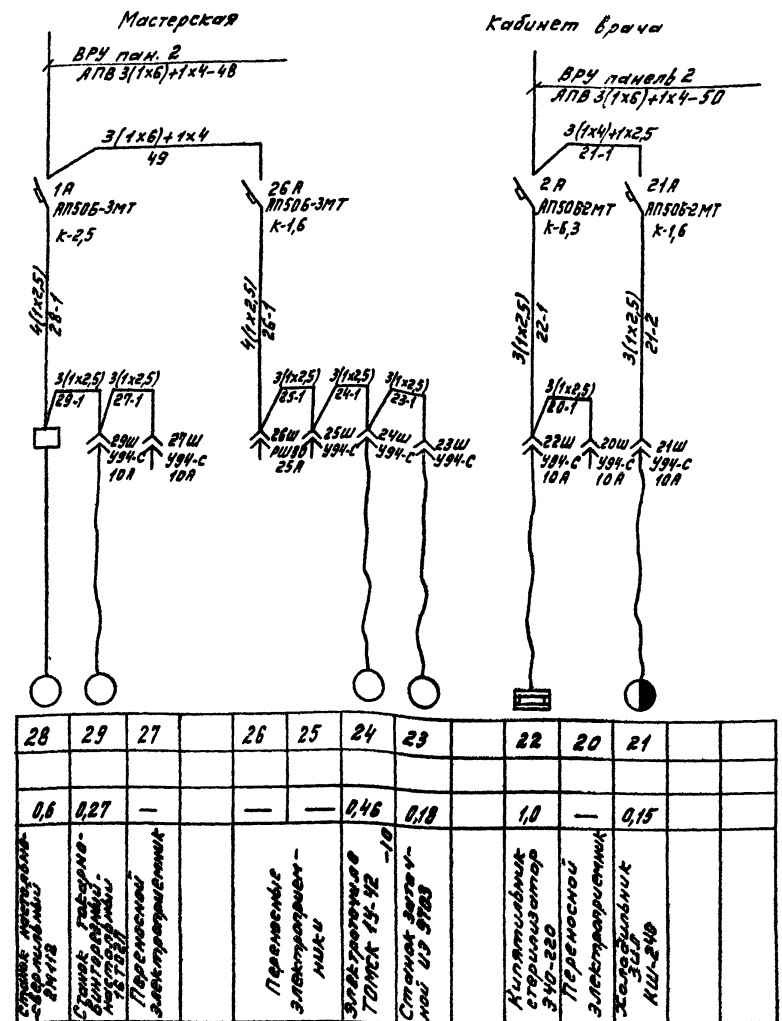 Мастерская
ВРУ пан. 2
АПВ 3(1х6)+1х4-48
3(1х6)+1х4
49
1А
АП50Б-3МТ
К-2,5
26А
АП50Б-3МТ
К-1,6
4(1х2,5)
28-1
4(1х2,5)
26-1
3(1х2,5)
29-1
3(1х2,5)
27-1
3(1х2,5)
25-1
3(1х2,5)
24-1
3(1х2,5)
23-1
29Ш
У94-С
10А
27Ш
У94-С
10А
26Ш
25А
25Ш
У94-С
24Ш
У94-С
23Ш
У94-С
Кабинет врача
ВРУ панель 2
АПВ 3(1х6)+1х4-50
3(1х4)+1х2,5
21-1
2А
АП50Б2МТ
К-6,3
21А
АП50Б-2МТ
К-1,6
3(1х2,5)
22-1
3(1х2,5)
21-2
3(1х2,5)
20-1
22Ш
У94-С
10А
20Ш
У94-С
10А
21Ш
У94-С
10А
28 29 27 26 25 24 23 22 20 21
0,6 0,27 — — — 0,46 0,18 1,0 — 0,15
Станок настольно-
сверлильный
2М112
Станок токарно-
винторезный
настольный
16Т02П
Переносной
электроприемник
Переносные
электроприем-
ники
Электроточило
ТОМСК 1У-42 -10
Станок заточ-
ной ИЭ 9703
Кипятильник
стерилизатор
Э40-220
Переносной
электроприемник
Холодильник
ЗИЛ
КШ-240